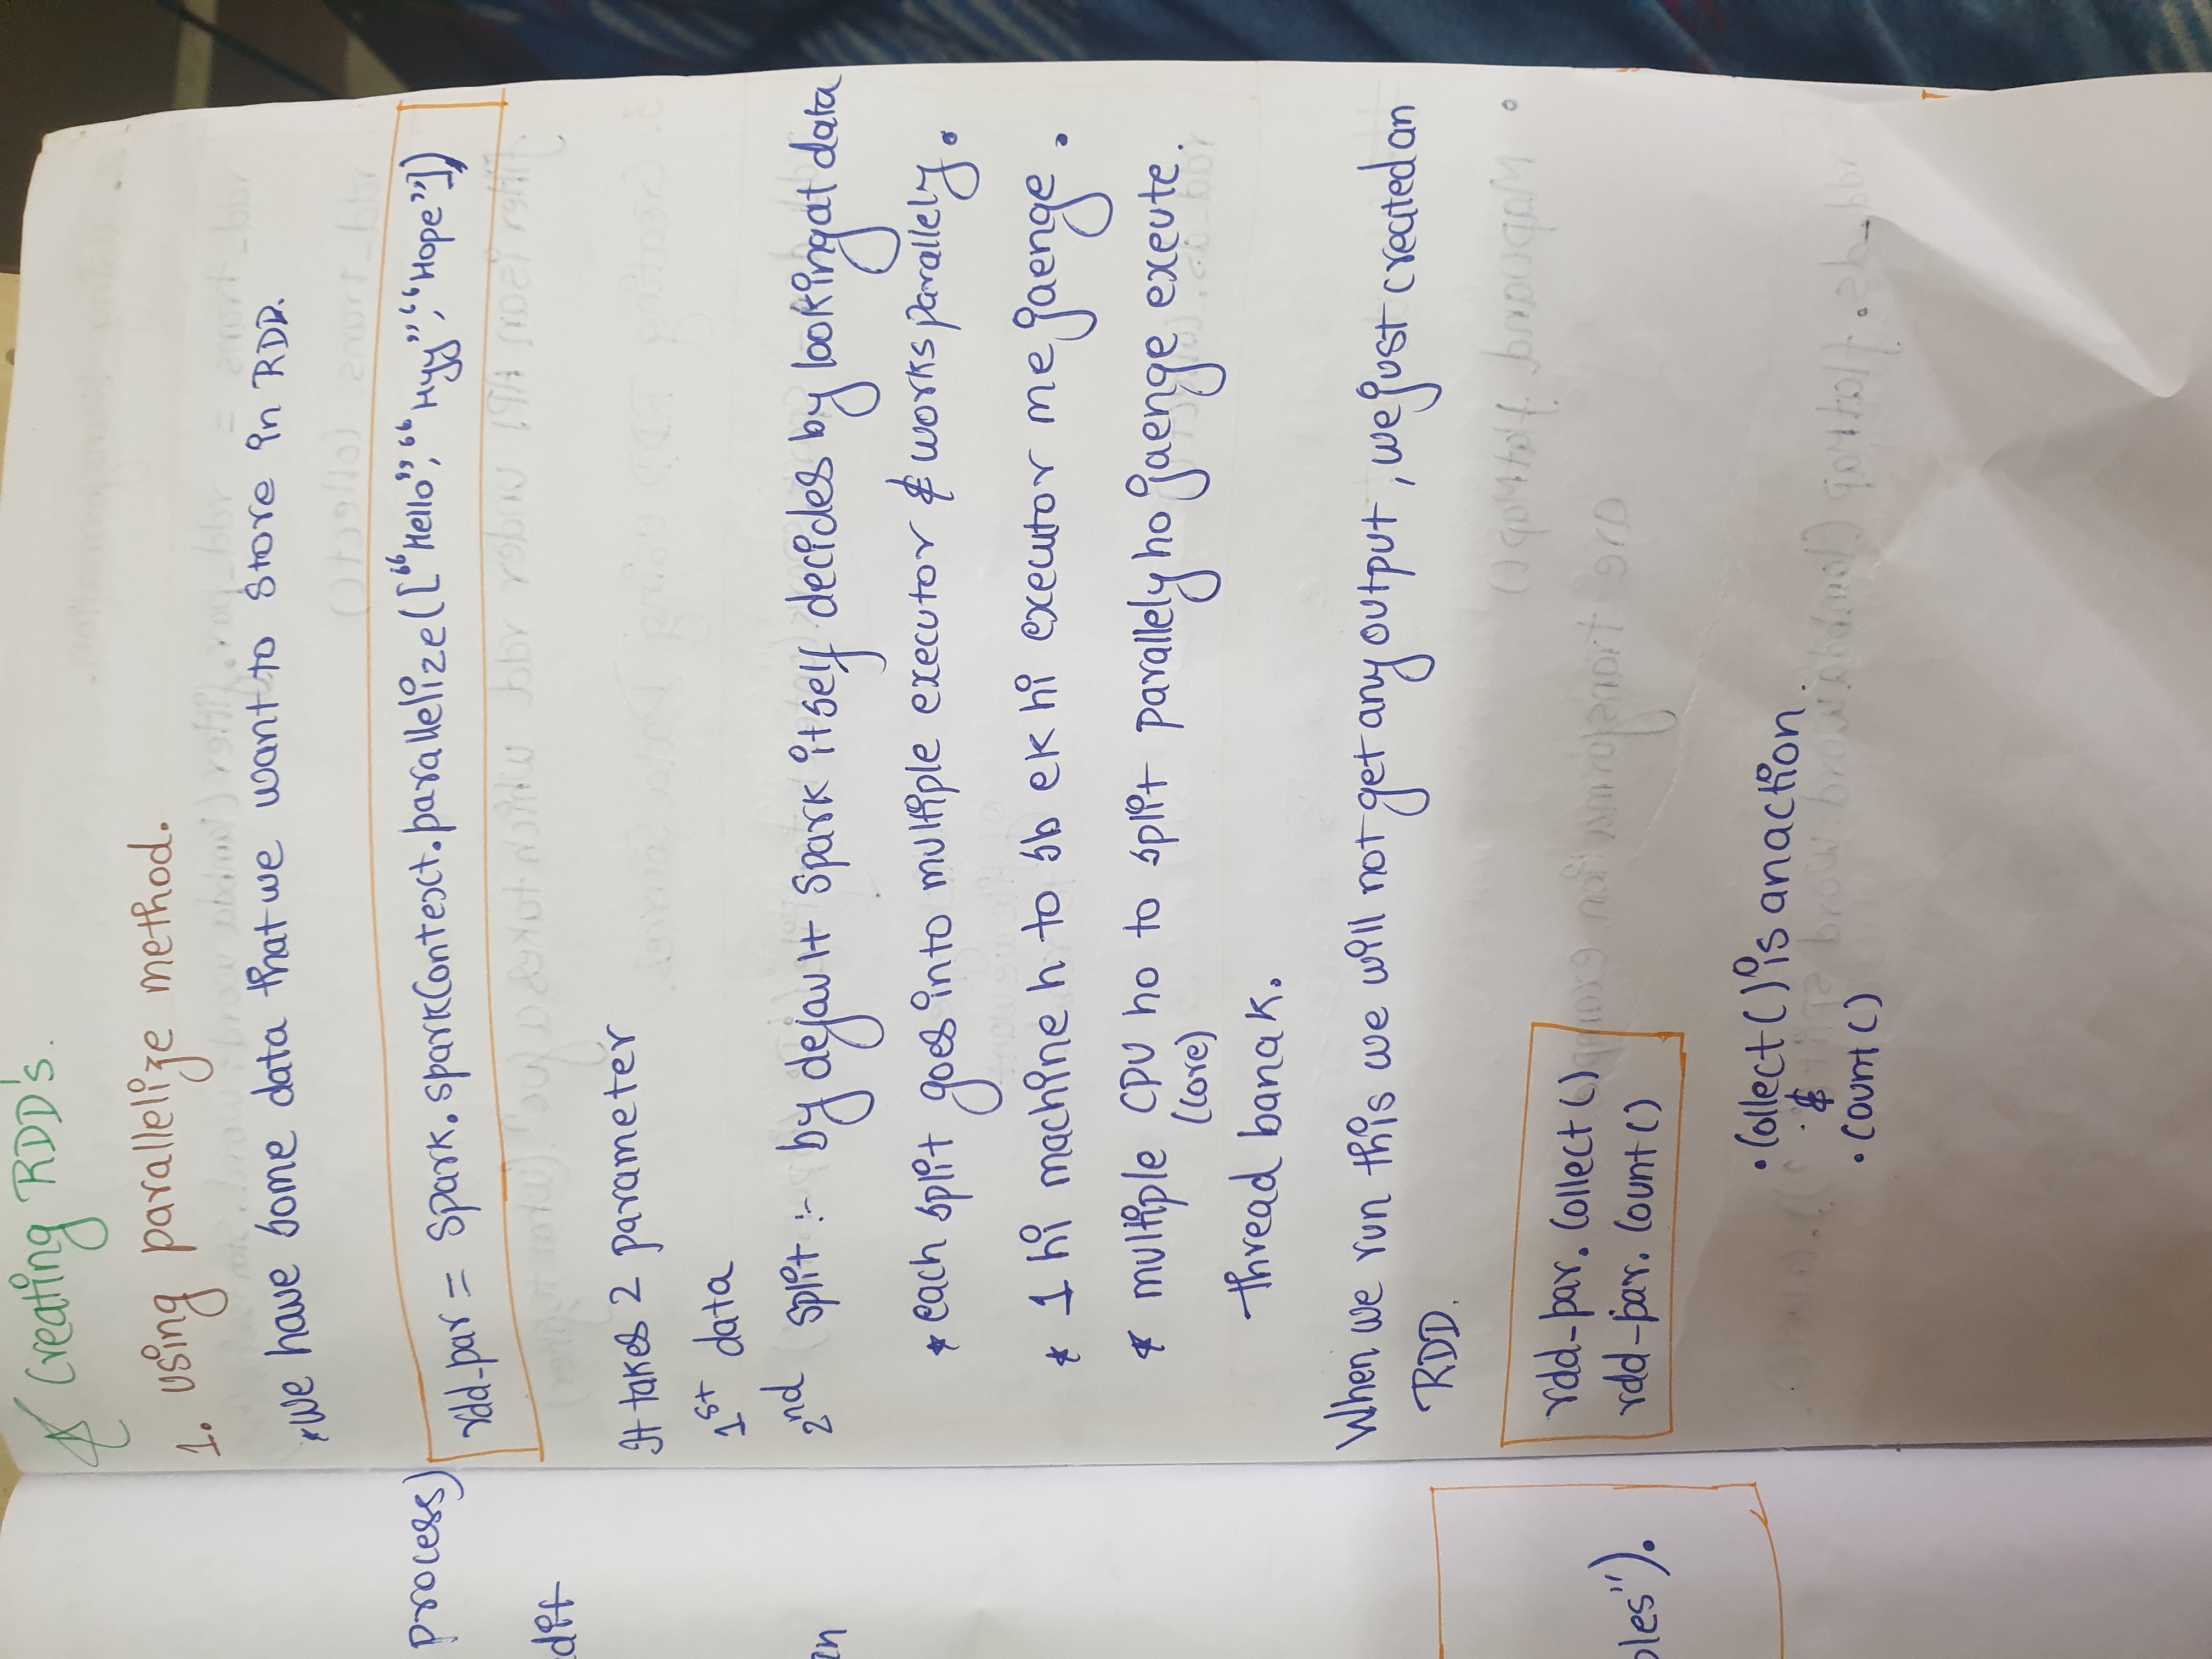 Creating RDD's.
1. using parallelize method.
*we have some data that we want to store in RDD.
process)
rdd_par = Spark.sparkContext.parallelize(["Hello", "Hyy", "Hope"])
dit
It takes 2 parameter
1st data
2nd split :- by default spark itself decides by looking at data
in
* each split goes into multiple executor & works parallely.
* 1 hi machine h to sb ek hi executor me jaenge.
* multiple CPU ho to split parallely ho jaenge exeute.
(core)
thread banak.
When we run this we will not get any output, we just created an
RDD.
rdd_par. Collect ()
rdd_par. Count ()
ples").
• Collect () is an action.
&
• Count ()